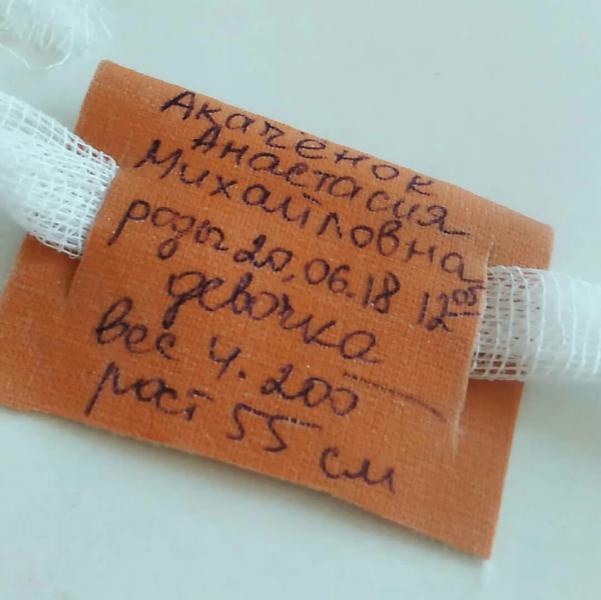 Акачёнок
Анастасия
Михайловна
роды 20.06.18 12 05
девочка
вес 4.200
рост 55 см